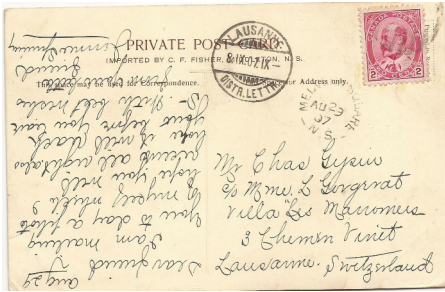 PRIVATE POST CARD
IMPORTED BY C. F. FISHER, N. S.
This space may be used for Correspondence. Address only.
LAUSANNE
8.IX.07.IX-
DISTR.LETTR.
SQUARE
AU 29
07
N.S.
CANADA POSTAGE
2 2
Mr Chas Gysin
c/o Mme. L Gorgerat
Villa "Les Marronniers
3 Chemin Vinet
Lausanne. Switzerland
Aug 29
Dear friend
I am mailing
you to day a photo
of myself which I
hope you will
receive all right also
hope it will reach
you before you leave
S. With best wishes
from your
friend
Jennie